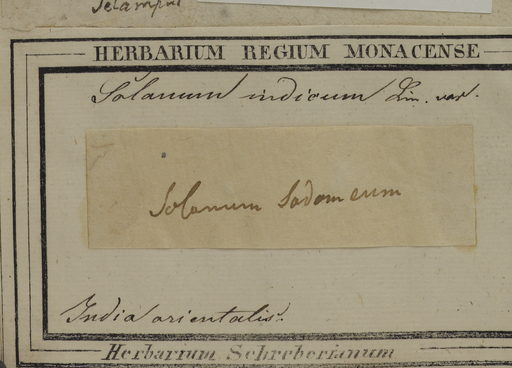 HERBARIUM REGIUM MONACENSE
Solanum indicum Lin. var.
Solanum Sodomeum
India orientalis.
Herbarium Schreberianum